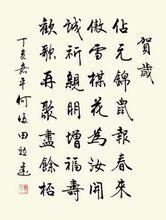 賀歲
佔元錦鼠報春來
傲雪棋花為汝開
誠祈親朋增福壽
歡歌再聚盡餘杯
丁亥嘉平何